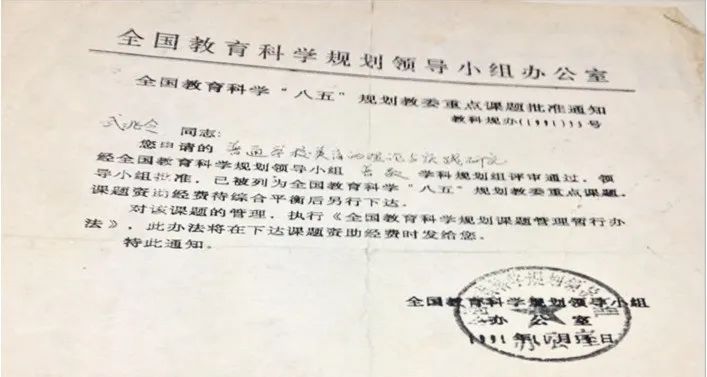 全国教育科学规划领导小组办公室
全国教育科学“八五”规划教委重点课题批准通知
教科规办(1991)13号
同志:
您申请的 普通学校美育的理论与实践研究
经全国教育科学规划领导小组 学科规划组评审通过,领
导小组批准,已被列为全国教育科学“八五”规划教委重点课题,
课题资助经费待综合平衡后另行下达。
对该课题的管理,执行《全国教育科学规划课题管理暂行办
法》,此办法将在下达课题资助经费时发给您。
特此通知。
全国教育科学规划领导小组
办公室
1991年 月 日
办公室